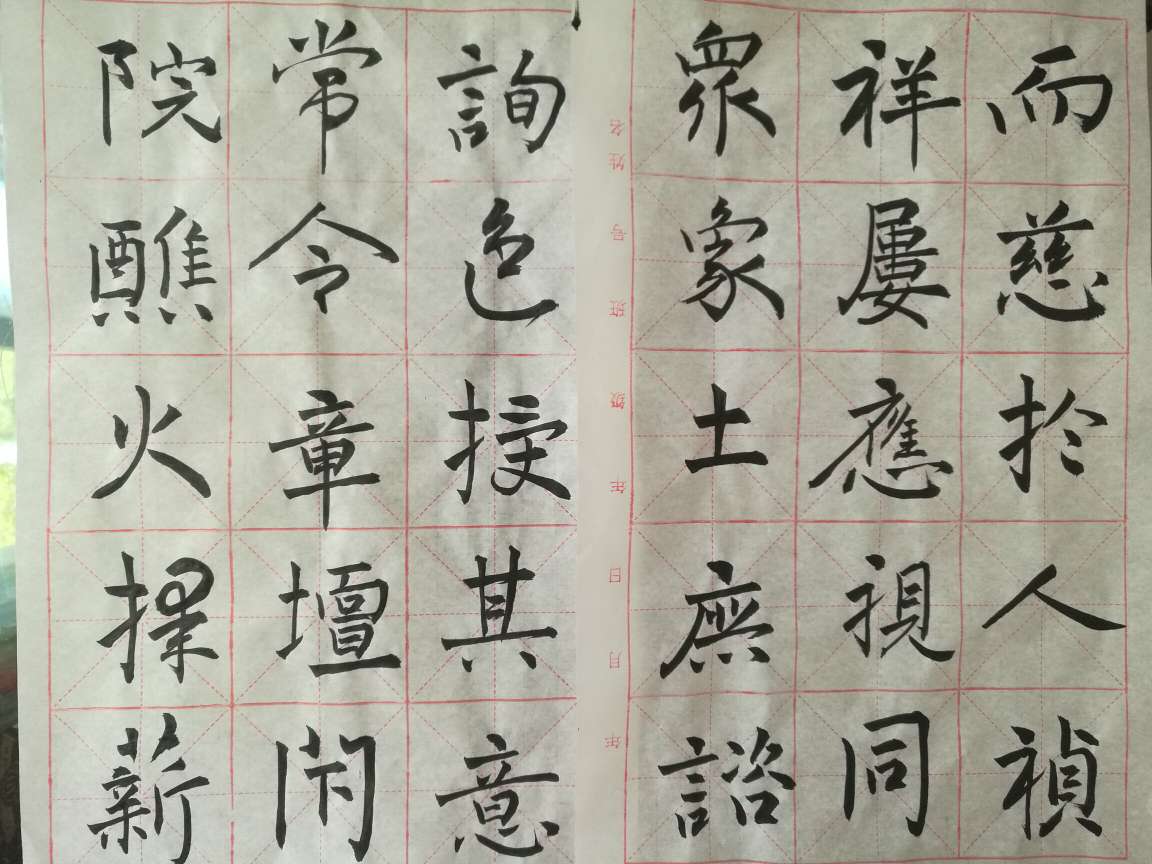 而慈於人禎
祥屢應視同
眾象土庶諮
年 月 日 年级 班 号 姓名
詢色授其意
常令章壇閇
院醮火薪